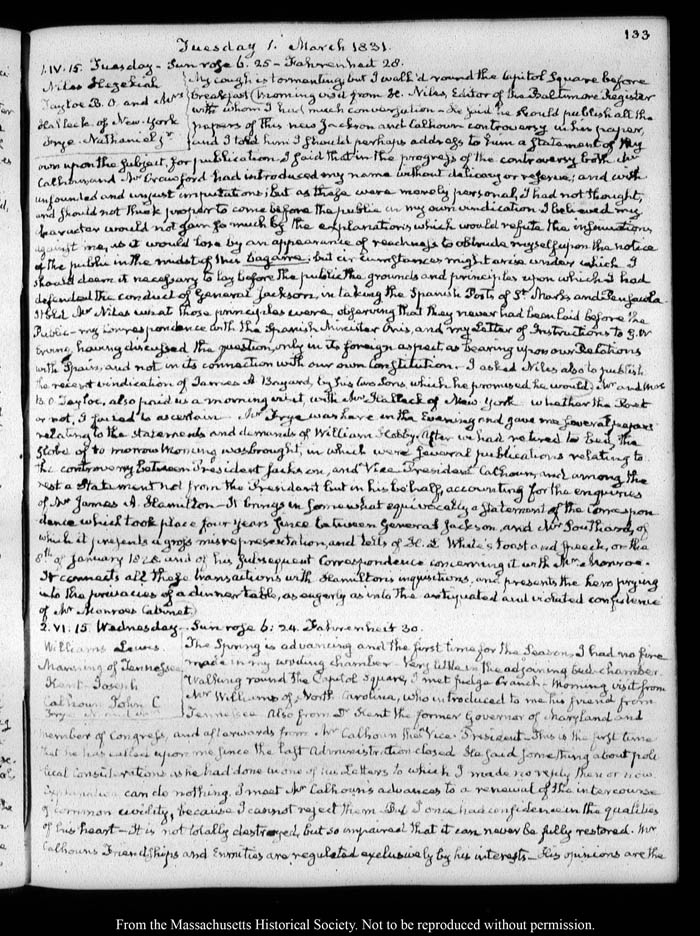 133
Tuesday 1. March 1831.
1. IV. 15. Tuesday - Sun rose 6. 25 - Fahrenheit 28.
Niles Hezekiah
Tayloe B. O. and Mrs
Halleck. of New-York
Frye Nathaniel Jr.
My cough is tormenting but I walk'd round the Capitol Square before
breakfast. Morning visit from H. Niles, Editor of the Baltimore Register
with whom I had much conversation - He said he should publish all the
papers of this new Jackson and Calhoun controversy in his paper,
and I told him I should perhaps address to him a Statement of my
own upon the subject, for publication. I said that in the progress of the controversy both Mr
Calhoun and Mr Crawford had introduced my name without delicacy or reserve; and with
unfounded and unjust imputations; But as these were merely personal, I had not thought,
and should not think proper to come before the public in my own vindication. I believed my
character would not gain so much by the explanations which would refute the insinuations
against me, as it would lose by an appearance of readiness to obtrude myself upon the notice
of the public in the midst of this bagarre. but circumstances might arise under which I
should deem it necessary to lay before the public the grounds and principles upon which I had
defended the conduct of General Jackson, in taking the Spanish Forts of St. Marks and Pensacola
I told Mr Niles what those principles were, observing that they never had been laid before the
Public - my Correspondence with the Spanish Minister Onis, and my Letter of Instructions to G. W
Erving, having discussed the question, only in its foreign aspect as bearing upon our Relations
with Spain, and not in its connection with our own Constitution. I asked Niles also to publish
the recent vindication of James A Bayard, by his two Sons, which he promised he would. Mr and Mrs
B. O Tayloe, also paid us a morning visit, with Mr Halleck of New York whether the Poet
or not, I failed to ascertain. Mr Frye was here in the Evening and gave me several papers
relating to the statements and demands of William Hebb. After we had retired to bed, the
Globe of to morrow Morning was brought, in which were several publications relating to
the controversy between President Jackson, and Vice-President Calhoun, and among the
rest a Statement not from the President but in his behalf, accounting for the enquiries
of Mr James A. Hamilton - It brings in somewhat equivocally a Statement of the Correspon
dence which took place four years since between General Jackson, and Mr Southard, of
which it presents a gross misrepresentation, and tells of H. L White's toast and speech, on the
8th of January 1828 and of his subsequent Correspondence concerning it with Mr Monroe.
It connects all these transactions with Hamilton's inquisitions, and presents the hero prying
into the privacies of a dinner table, as eagerly as into the antiquated and violated confidence
of Mr Monroes Cabinet.
2. VI. 15. Wednesday - Sun rose 6: 24. Fahrenheit 30.
Williams Lewis.
Manning of Tennessee
Kent. Joseph
Calhoun John C
Frye Nathaniel
The Spring is advancing and the first time for the Season, I had no fire
made in my writing chamber - Very little in the adjoining bed-chamber.
Walking round the Capitol Square, I met Judge Cranch - Morning visit from
Mr Williams of North Carolina, who introduced to me his friend from
Tennessee. Also from Dr Kent the former Governor of Maryland and
member of Congress, and afterwards from Mr Calhoun the Vice-President - This is the first time
that he has called upon me since the last Administration closed. He said something about poli
tical considerations as he had done in one of his Letters to which I made no reply then or now.
Explanation can do nothing. I meet Mr Calhoun's advances to a renewal of the intercourse
of common civility, because I cannot reject them - But I once had confidence in the qualities
of his heart - It is not totally destroyed, but so impaired that it can never be fully restored. Mr
Calhoun's Friendships and Enmities are regulated exclusively by his interests - His opinions are the
From the Massachusetts Historical Society. Not to be reproduced without permission.